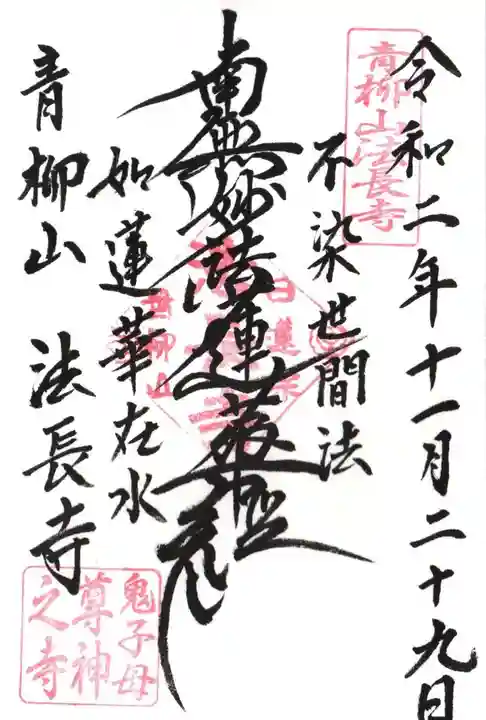 令和二年十一月二十九日
青柳山法長寺
不染世間法
南無妙法蓮華経
日蓮宗
青柳山
如蓮華在水
青柳山 法長寺
鬼子母
尊神
之寺